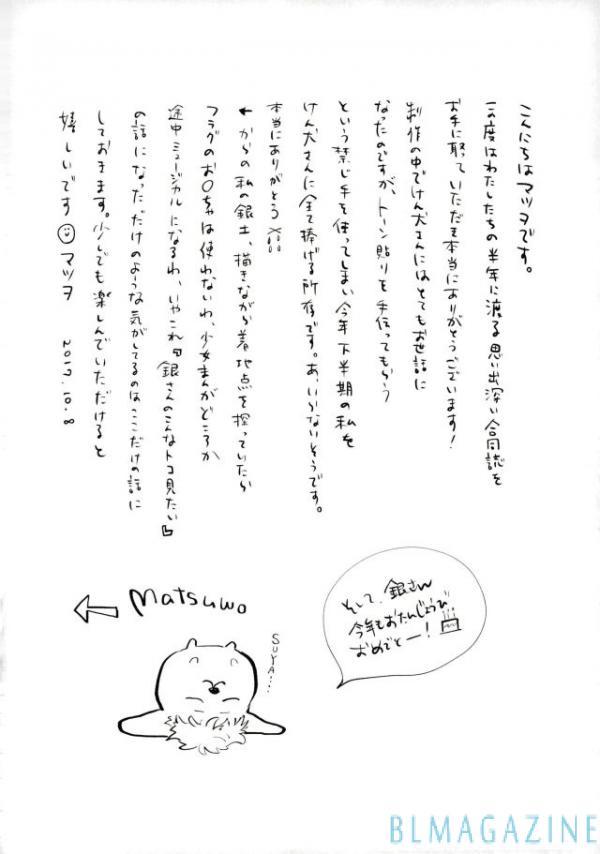 こんにちはマツヲです。
この度はわたしたちの半年に渡る思い出深い合同誌を
お手に取っていただき本当にありがとうございます!
制作の中でけん犬さんにはとてもお世話に
なったのですが、トーン貼りを手伝ってもらう
という禁じ手を使ってしまい今年下半期の私を
けん犬さんに全て捧げる所存です。あ、いらないそうです。
本当にありがとう
←からの私の銀土、描きながら着地点を探っていたら
フラグのお〇ちゃは使わないわ、少女まんがどころか
途中ミュージカルになるわ、いやこれ『銀さんのこんなトコ見たい』
の話になっただけのような気がしてるのはここだけの話に
しておきます。少しでも楽しんでいただけると
嬉しいです マツヲ 2017.10.8
そして、銀さん
今年もおたんじょうび
おめでとー!
Matsuwo
SUYA...
BLMAGAZINE